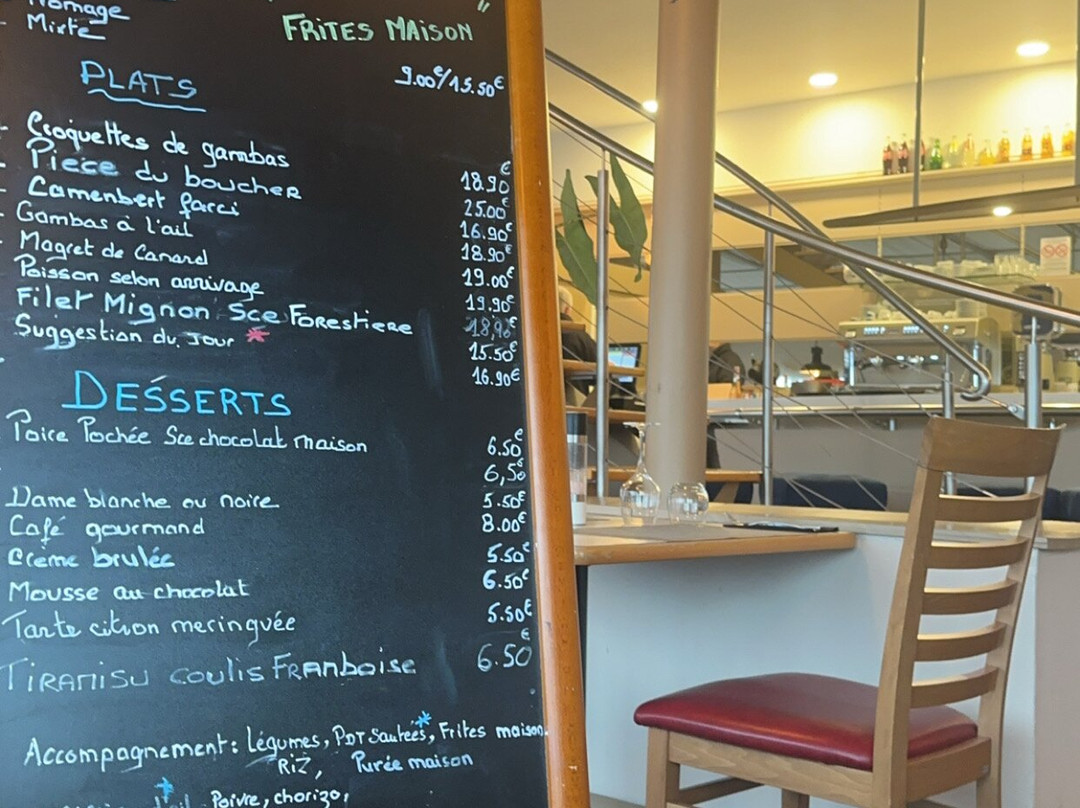 Fromage
- Mixte
FRITES MAISON "
9.00€/15.50€
PLATS
- Croquettes de gambas
- Piece du boucher 18.90€
- Camembert farci 25.00€
- Gambas à l'ail 16.90€
Magret de Canard 18.90€
Poisson selon arrivage 19.00€
Filet Mignon Sce Forestiere 19.90€
Suggestion du Jour * 18,90€
15.50€
16.90€
DESSERTS
Poire Pochée Sce chocolat maison 6.50€
6,50€
Dame blanche ou noire 5.50€
Café gourmand 8.00€
Crème brulée 5.50€
Mousse au chocolat 6.50€
Tarte citron meringuée 5.50€
TIRAMISU coulis FRAMboise 6.50€
Accompagnement: Légumes, PDT Sautées*, Frites maison
RIZ, Purée maison
* l'ail Poivre, chorizo,